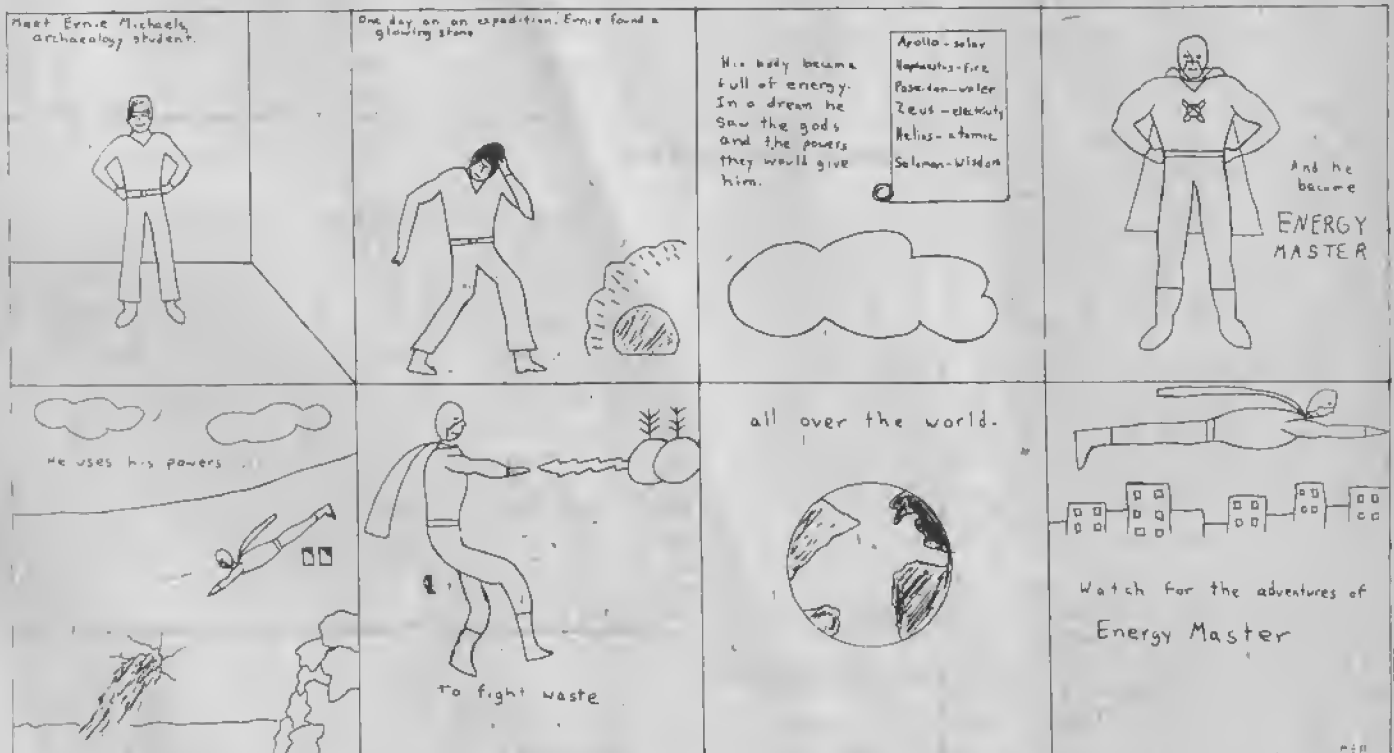 Meet Ernie Michaels,
archaeology student.
One day on an expedition, Ernie found a
glowing stone
His body became
full of energy.
In a dream he
saw the gods
and the powers
they would give
him.
Apollo - solar
Hephaestus - fire
Poseidon - water
Zeus - electricity
Helios - atomic
Solomon - wisdom
And he
became
ENERGY
MASTER
He uses his powers
To fight waste
all over the world.
Watch for the adventures of
Energy Master